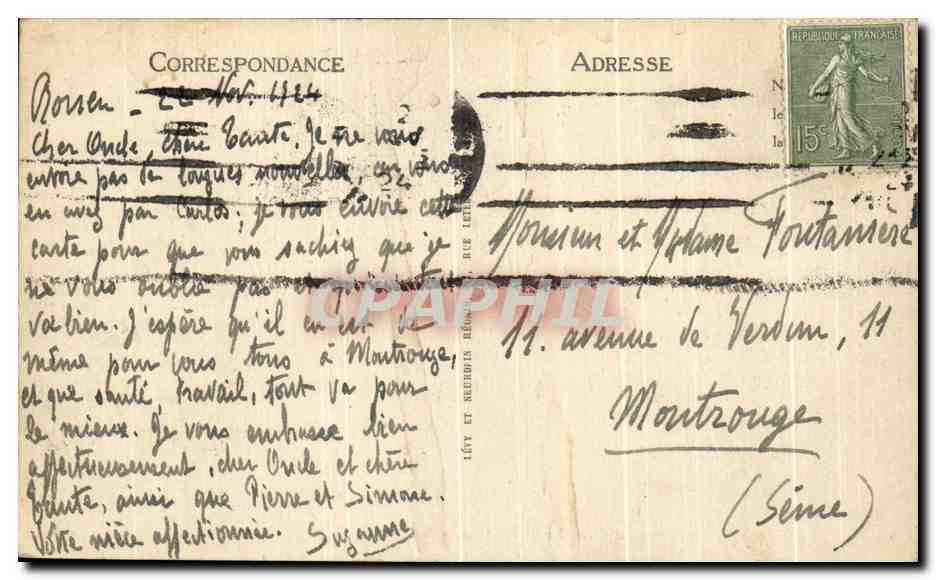 CORRESPONDANCE
Rouen - 22 Nov. 1924
Cher Oncle, chère Tante. Je ne vous
envoie pas de longues nouvelles, car vous
en avez par Carlos; je vous envoie cette
carte pour que vous sachiez que je
ne vous oublie pas et que ici tout
va bien. J'espère qu'il en est de
même pour vous tous à Montrouge,
et que santé, travail, tout va pour
le mieux. Je vous embrasse bien
affectueusement, cher Oncle et chère
Tante, ainsi que Pierre et Simone.
Votre nièce affectionnée. Suzanne
LÉVY ET NEURDIN RÉUNIS
RUE LETE
ADRESSE
REPUBLIQUE FRANÇAISE
15c
N
le
la
Monsieur et Madame Fontanière
11. avenue de Verdun, 11
Montrouge
(Seine)
CPAPHIL